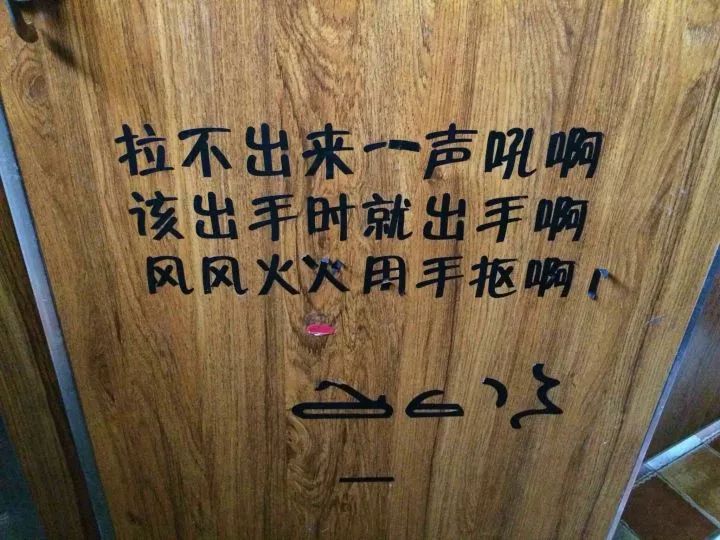 拉不出来一声吼啊
该出手时就出手啊
风风火火用手抠啊